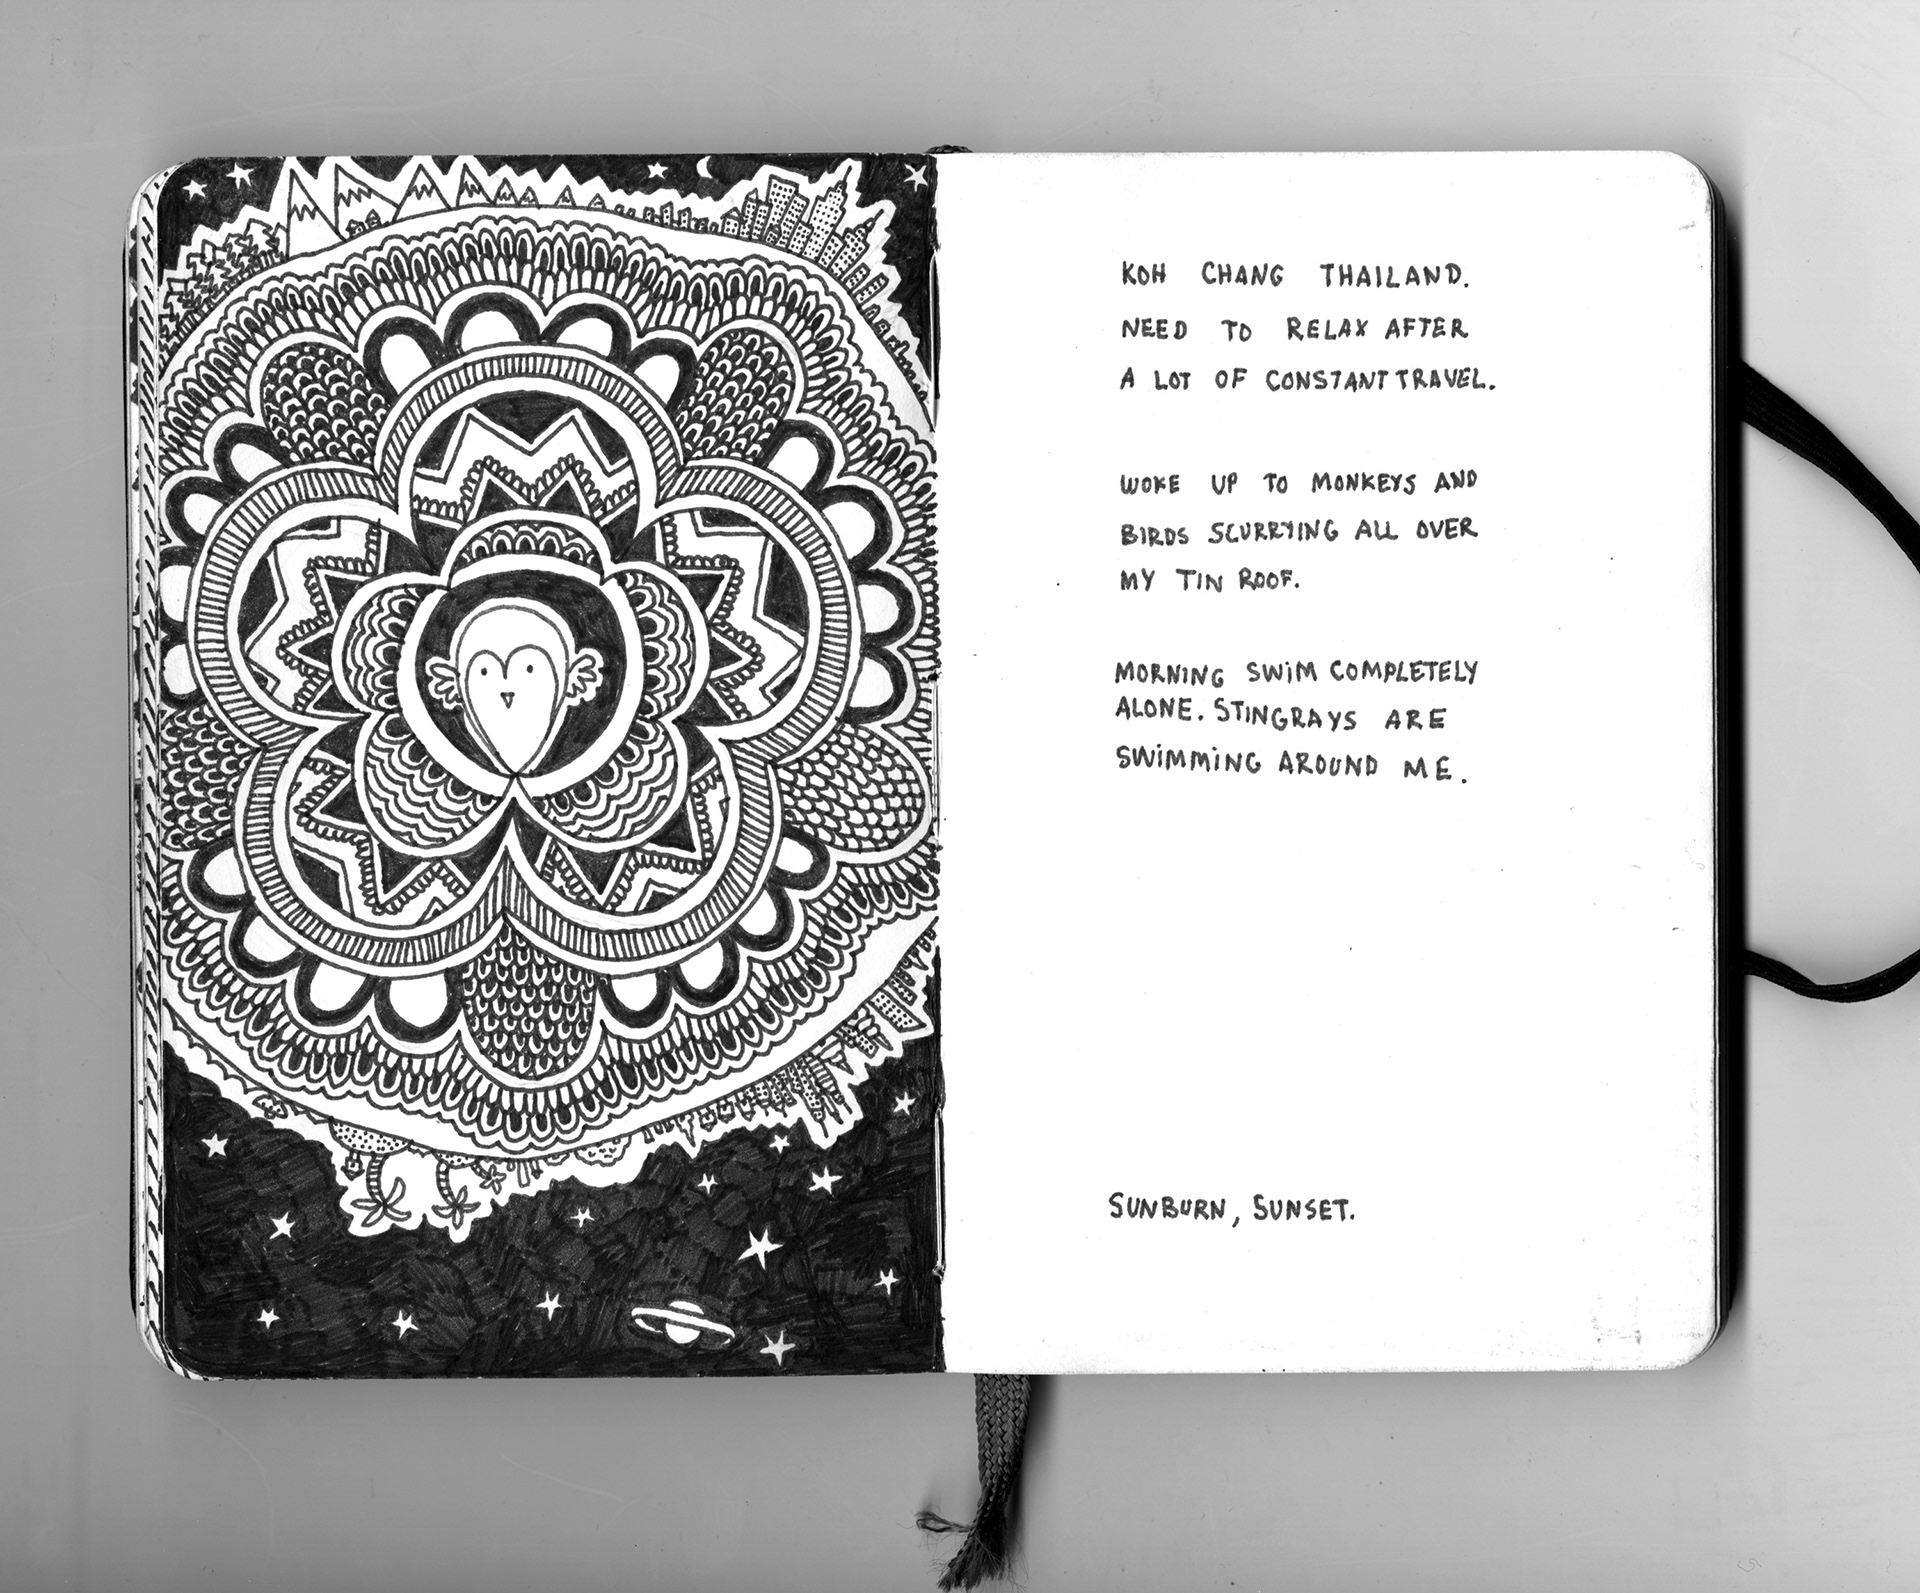 KOH CHANG THAILAND.
NEED TO RELAX AFTER
A LOT OF CONSTANT TRAVEL.
WOKE UP TO MONKEYS AND
BIRDS SCURRYING ALL OVER
MY TIN ROOF.
MORNING SWIM COMPLETELY
ALONE. STINGRAYS ARE
SWIMMING AROUND ME.
SUNBURN, SUNSET.